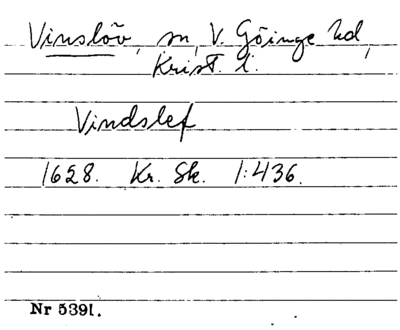 Vinslöv, sn, V. Göinge hd,
Krist. l.
Vindslef
1628. Kr. Sk. 1:436.
Nr 5391.